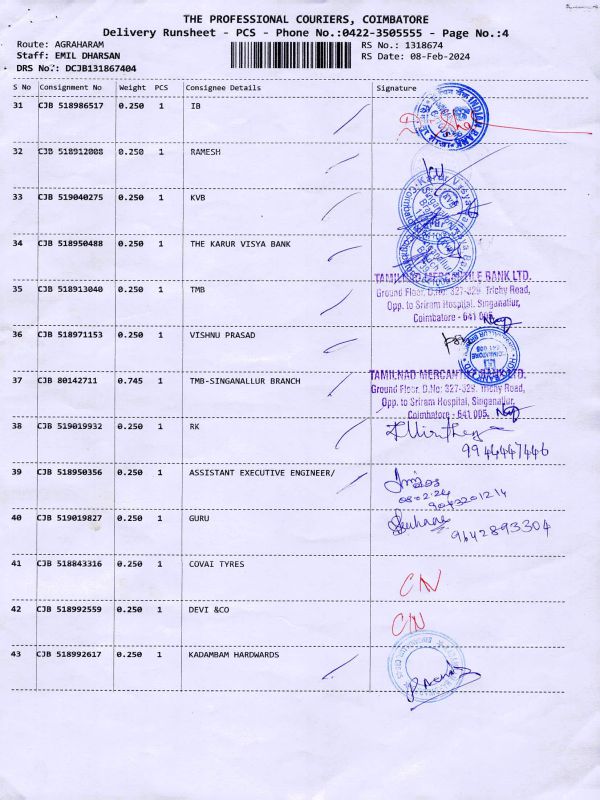 THE PROFESSIONAL COURIERS, COIMBATORE
Delivery Runsheet - PCS - Phone No.:0422-3505555 - Page No.:4
Route: AGRAHARAM RS No.: 1318674
Staff: EMIL DHARSAN RS Date: 08-Feb-2024
DRS No.: DCJB131867404
S No Consignment No Weight PCS Consignee Details Signature
31 CJB 518986517 0.250 1 IB
INDIAN BANK
32 CJB 518912008 0.250 1 RAMESH
33 CJB 519040275 0.250 1 KVB
34 CJB 518950488 0.250 1 THE KARUR VISYA BANK
35 CJB 518913040 0.250 1 TMB
TAMILNAD MERCANTILE BANK LTD.
Ground Floor, D.No: 327-329, Trichy Road,
Opp. to Sriram Hospital, Singanallur,
Coimbatore - 641 005.
36 CJB 518971153 0.250 1 VISHNU PRASAD
37 CJB 80142711 0.745 1 TMB-SINGANALLUR BRANCH
TAMILNAD MERCANTILE BANK LTD.
Ground Floor, D.No: 327-329, Trichy Road,
Opp. to Sriram Hospital, Singanallur,
Coimbatore - 641 005.
38 CJB 519019932 0.250 1 RK
9944447446
39 CJB 518950356 0.250 1 ASSISTANT EXECUTIVE ENGINEER/
08.02.24
9043201214
40 CJB 519019827 0.250 1 GURU
9642893304
41 CJB 518843316 0.250 1 COVAI TYRES
CN
42 CJB 518992559 0.250 1 DEVI &CO
CN
43 CJB 518992617 0.250 1 KADAMBAM HARDWARDS